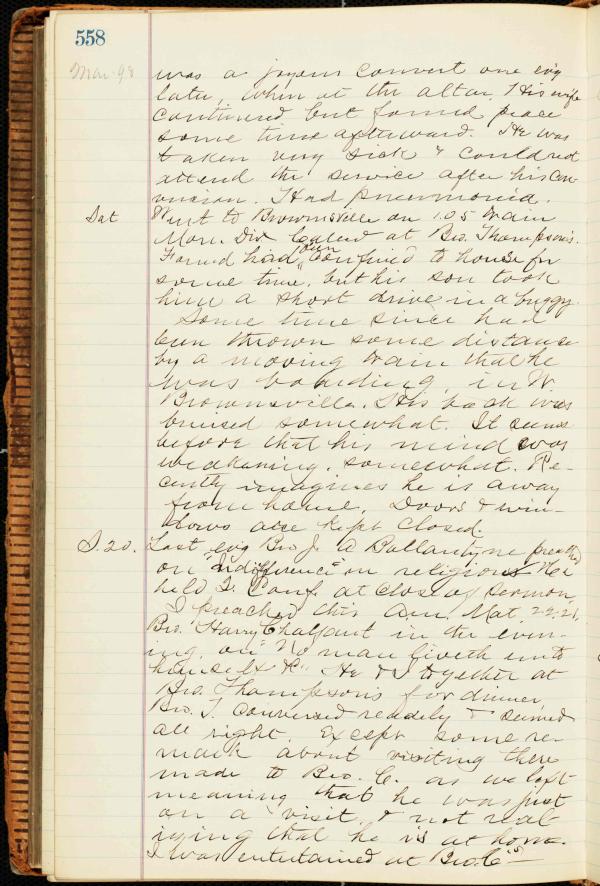 558
Mar. 98
was a joyous convert one ev'g
later, when at the altar. His wife
continued but found peace
some time afterward. He was
taken very sick & could not
attend the service after his con-
version. Had pneumonia.
Sat
Went to Brownsville on 1.05 train
Mon. Div. Called at Bro. Thompson's.
Found had been confined to house for
some time, but his son took
him a short drive in a buggy.
Some time since had
been thrown some distance
by a moving train that he
was boarding, in W.
Brownsville. His back was
bruised somewhat. It seems
before that his mind was
weakening, somewhat. Re-
cently imagines he is away
from home. Doors & win-
dows are kept closed.
S. 20.
Last ev'g Bro J. A Ballantyne preached
on "Indifference" on religion He
held Q. Conf. at close of sermon
I preached this Mat. 22:21,
Bro. Harry Chalfant in the even-
ing, on "No man liveth unto
himself" He & I together at
Bro. Thompson's for dinner,
Bro. T. conversed readily & seemed
all right, Except some re-
mark about visiting there
made to Bro. C. as we left
meaning that he was just
on a visit & not real-
izing that he is at home.
I was entertained at Bro. C's